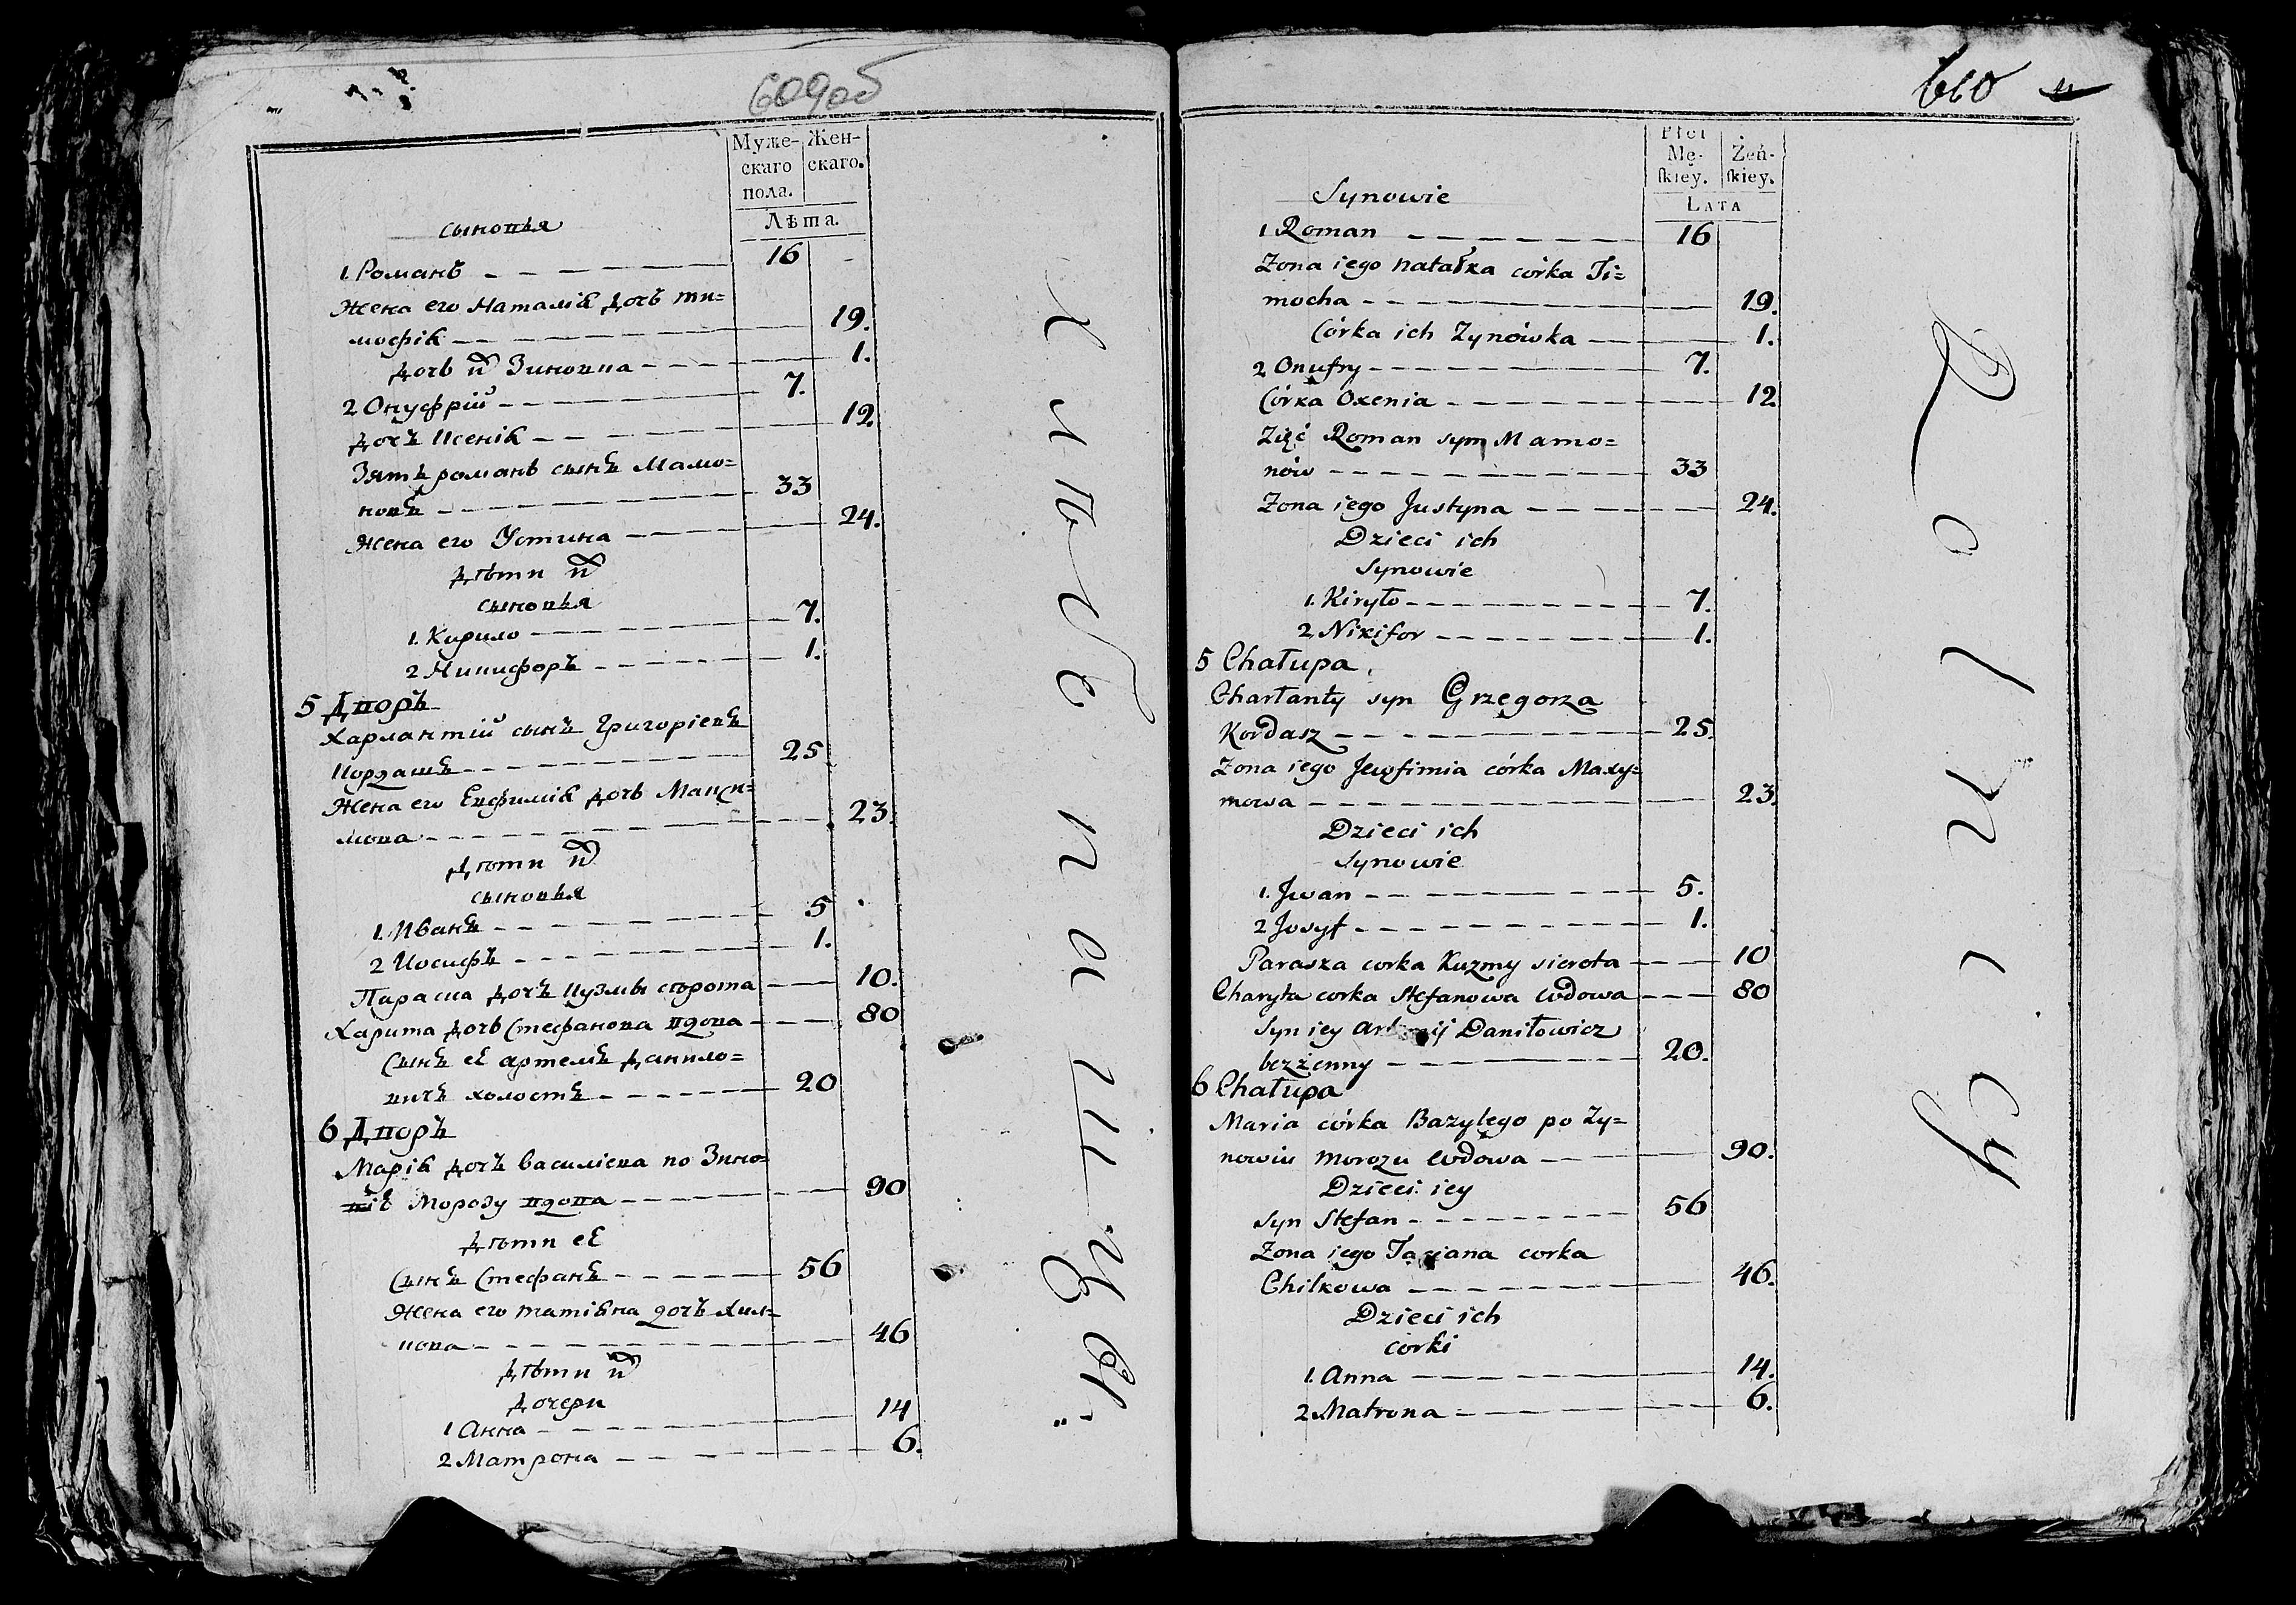 609об
Муже-
скаго
пола.
Жен-
скаго.
Лѣта.
сыновья
1. Романъ 16
Жена его Наталія дочь ти=
мофія 19.
дочь их Зиновка 1.
2 Онуфрій 7.
дочъ Ксенія 12.
Зять романъ сынъ Мамо=
новъ 33
Жена его Устина 24.
дѣти их
сыновья
1. Кирило 7.
2 Никифоръ 1.
5 Дворъ
Харлантій сынъ Григоріевъ
Кордашъ 25
Жена его Евфимія дочь Макси=
мова 23.
дѣти их
сыновья
1. Иванъ 5
2 Иосифъ 1.
Параска дочъ Кузмы сѣрота 10.
Харита дочь Стефанова вдова 80
Сынъ еѣ артемъ данило=
вичъ холостъ 20
6 Дворъ
Марія дочъ василіева по Зино=
віѣ Морозу вдова 90
дѣти еѣ
Сынъ Стефанъ 56
Жена его татіяна дочъ хил=
кова 46
дѣти их
дочери
1 Анна 14
2 Матрона 6.
610
Płci
Mę-
skiey.
Żeń-
skiey.
LATA
Synowie
1. Roman 16
Zona iego Natałka córka Ti=
mocha 19.
Córka ich Zynówka 1.
2 Onufry 7.
Córka Oxenia 12
Zięć Roman syn Mamo=
nów 33
Zona iego Justyna 24.
Dzieci ich
Synowie
1. Kiryło 7.
2 Nikifor 1.
5 Chałupa
Charłanty syn Grzegorza
Kordasz 25.
Zona iego Jewfimia córka Maxy=
mowa 23.
Dzieci ich
Synowie
1. Jwan 5.
2 Josyf 1.
Paraska corka Kuzmy sierota 10
Charyta corka Stefanowa wdowa 80
Syn iey Daniłowicz
bezżenny 20.
6 Chałupa
Maria córka Bazylego po Zy=
nowiu Morozu wdowa 90.
Dzieci iey
Syn Stefan 56
Zona iego Taciana corka
Chilkowa 46.
Dzieci ich
corki
1. Anna 14.
2 Matrona 6.